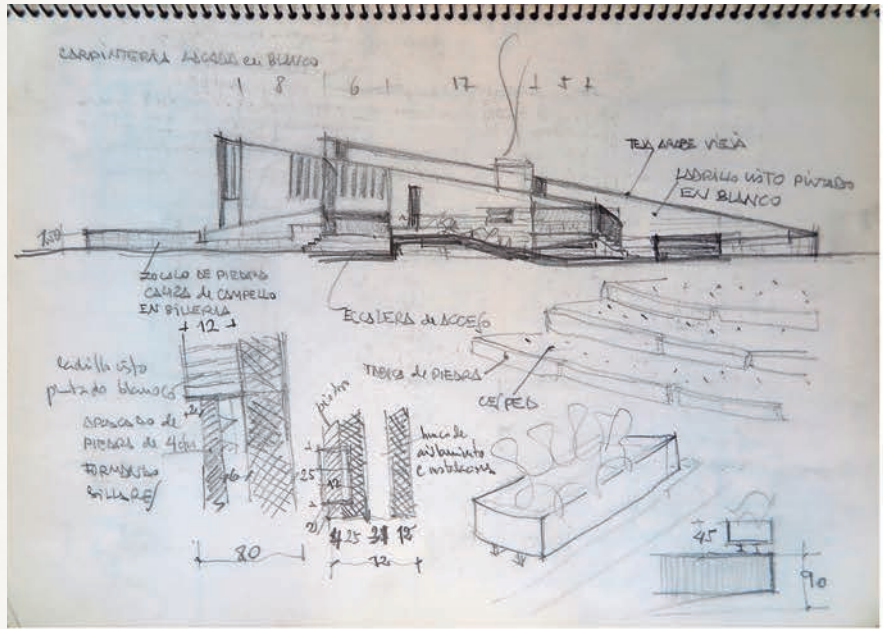 CARPINTERIA LACADA en BLANCO
8 6 17 5
TEJA ARABE VIEJA
LADRILLO VISTO PINTADO
EN BLANCO
1,50
ZOCALO DE PIEDRA
CALIZA de CAMPELLO
EN SILLERIA
ESCALERA de ACCESO
12
ladrillo visto
pintado blanco
APLACADO de
PIEDRA de 4cm
FORMANDO
SILLARES
6
25
80
piedra
12
hueco de
aislamiento
e instalaciones
4 25 12
72
TABICA de PIEDRA
CESPED
45
90